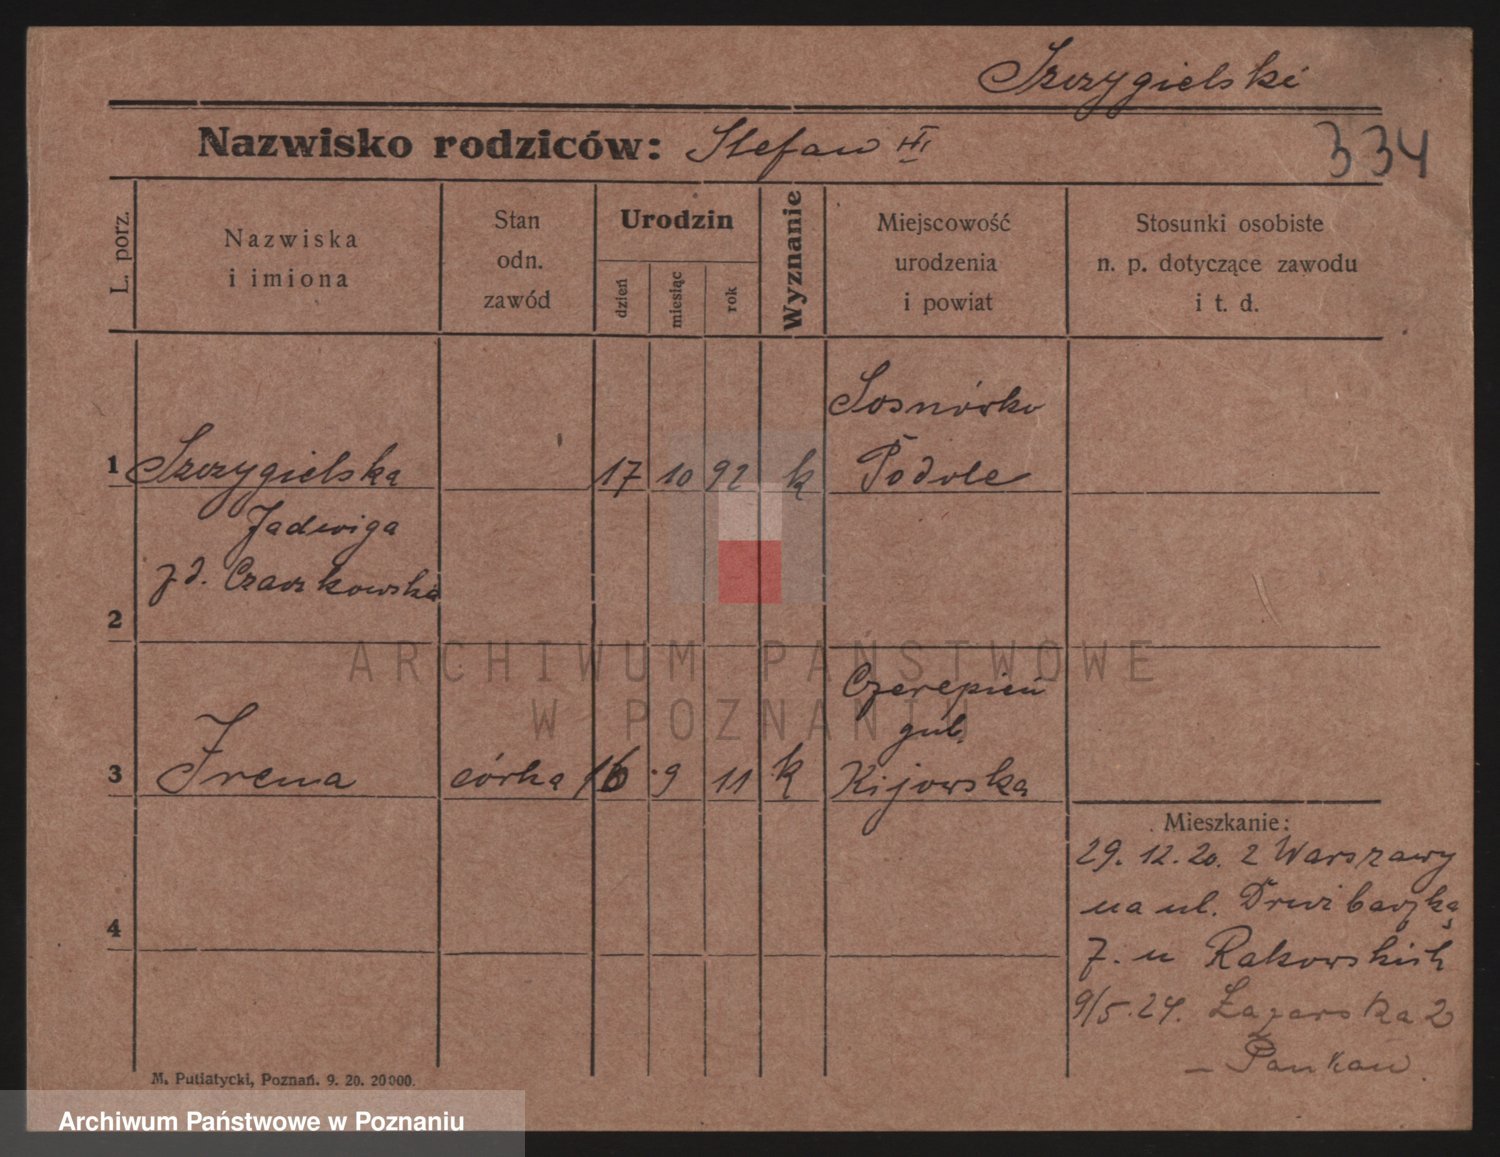 Szczygielski
Nazwisko rodziców: Stefan III
334
L. porz.
Nazwiska
i imiona
Stan
odn.
zawód
Urodzin
dzień
miesiąc
rok
Wyznanie
Miejscowość
urodzenia
i powiat
Stosunki osobiste
n. p. dotyczące zawodu
i t. d.
Sosnówko
1 Szczygielska 17 10 92 k Podole
Jadwiga
zd. Czaczkowska
2
Czerepień
gub.
3 Irena córka 16 9 11 k Kijowska
Mieszkanie:
29. 12. 20. z Warszawy
na ul. Drużbacką
7. u Rakowskich
4
9/5.24. Łazarska 2
– Pankau.
M. Putiatycki, Poznań. 9. 20. 20000.
ARCHIWUM PAŃSTWOWE
W POZNANIU
Archiwum Państwowe w Poznaniu